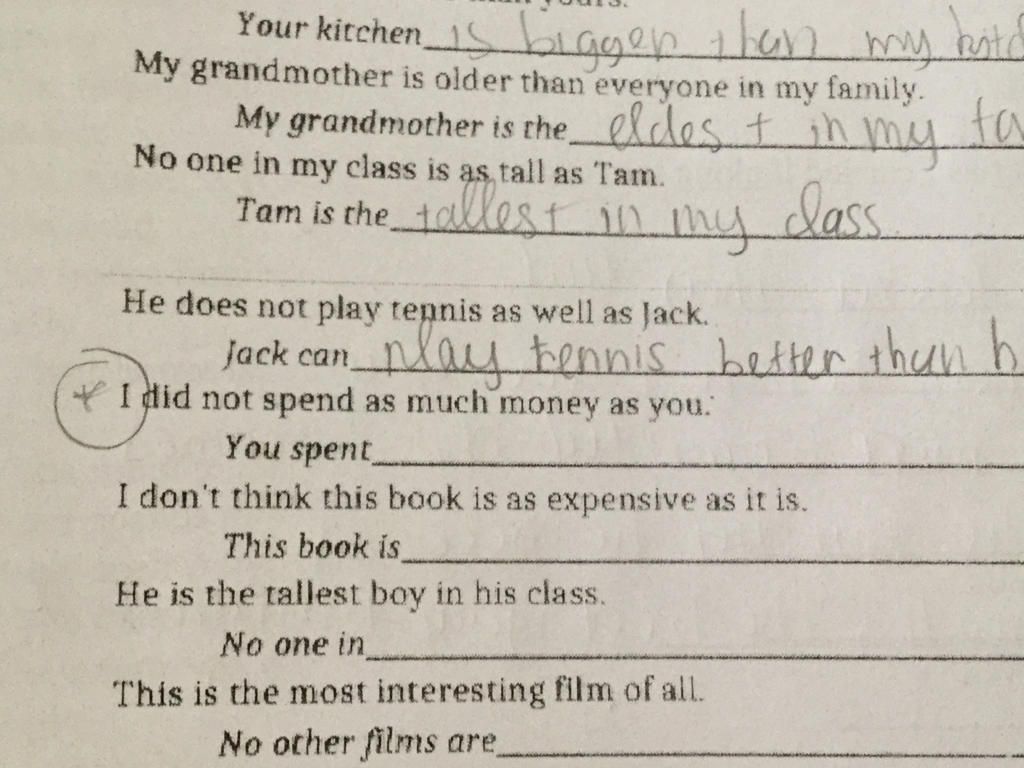 yours.
Your kitchen is bigger than my
My grandmother is older than everyone in my family.
My grandmother is the eldest in my
No one in my class is as tall as Tam.
Tam is the tallest in my class.
He does not play tennis as well as Jack.
Jack can play tennis better than h
* I did not spend as much money as you.
You spent
I don't think this book is as expensive as it is.
This book is
He is the tallest boy in his class.
No one in
This is the most interesting film of all.
No other films are